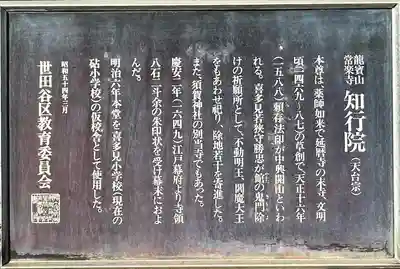 龍寳山
常楽寺
知行院(天台宗)
本尊は薬師如来で延暦寺の末寺、文明
頃(一四六九~八七)の草創で、天正十六年
(一五八八)頼存法印が中興開山といわ
れる。喜多見若狭守勝忠が館の鬼門除
けの祈願所として、不動明王、閻魔大王
をもあわせ祀り、除地若干を寄進した。
また、須賀神社の別当寺でもあった。
慶安二年(一六四九)江戸幕府より寺領
八石二斗余の朱印状を受け幕末におよ
んだ。
明治六年本堂を喜多見小学校(現在の
砧小学校)の仮校舎として使用した。
昭和五十四年三月
世田谷区教育委員会